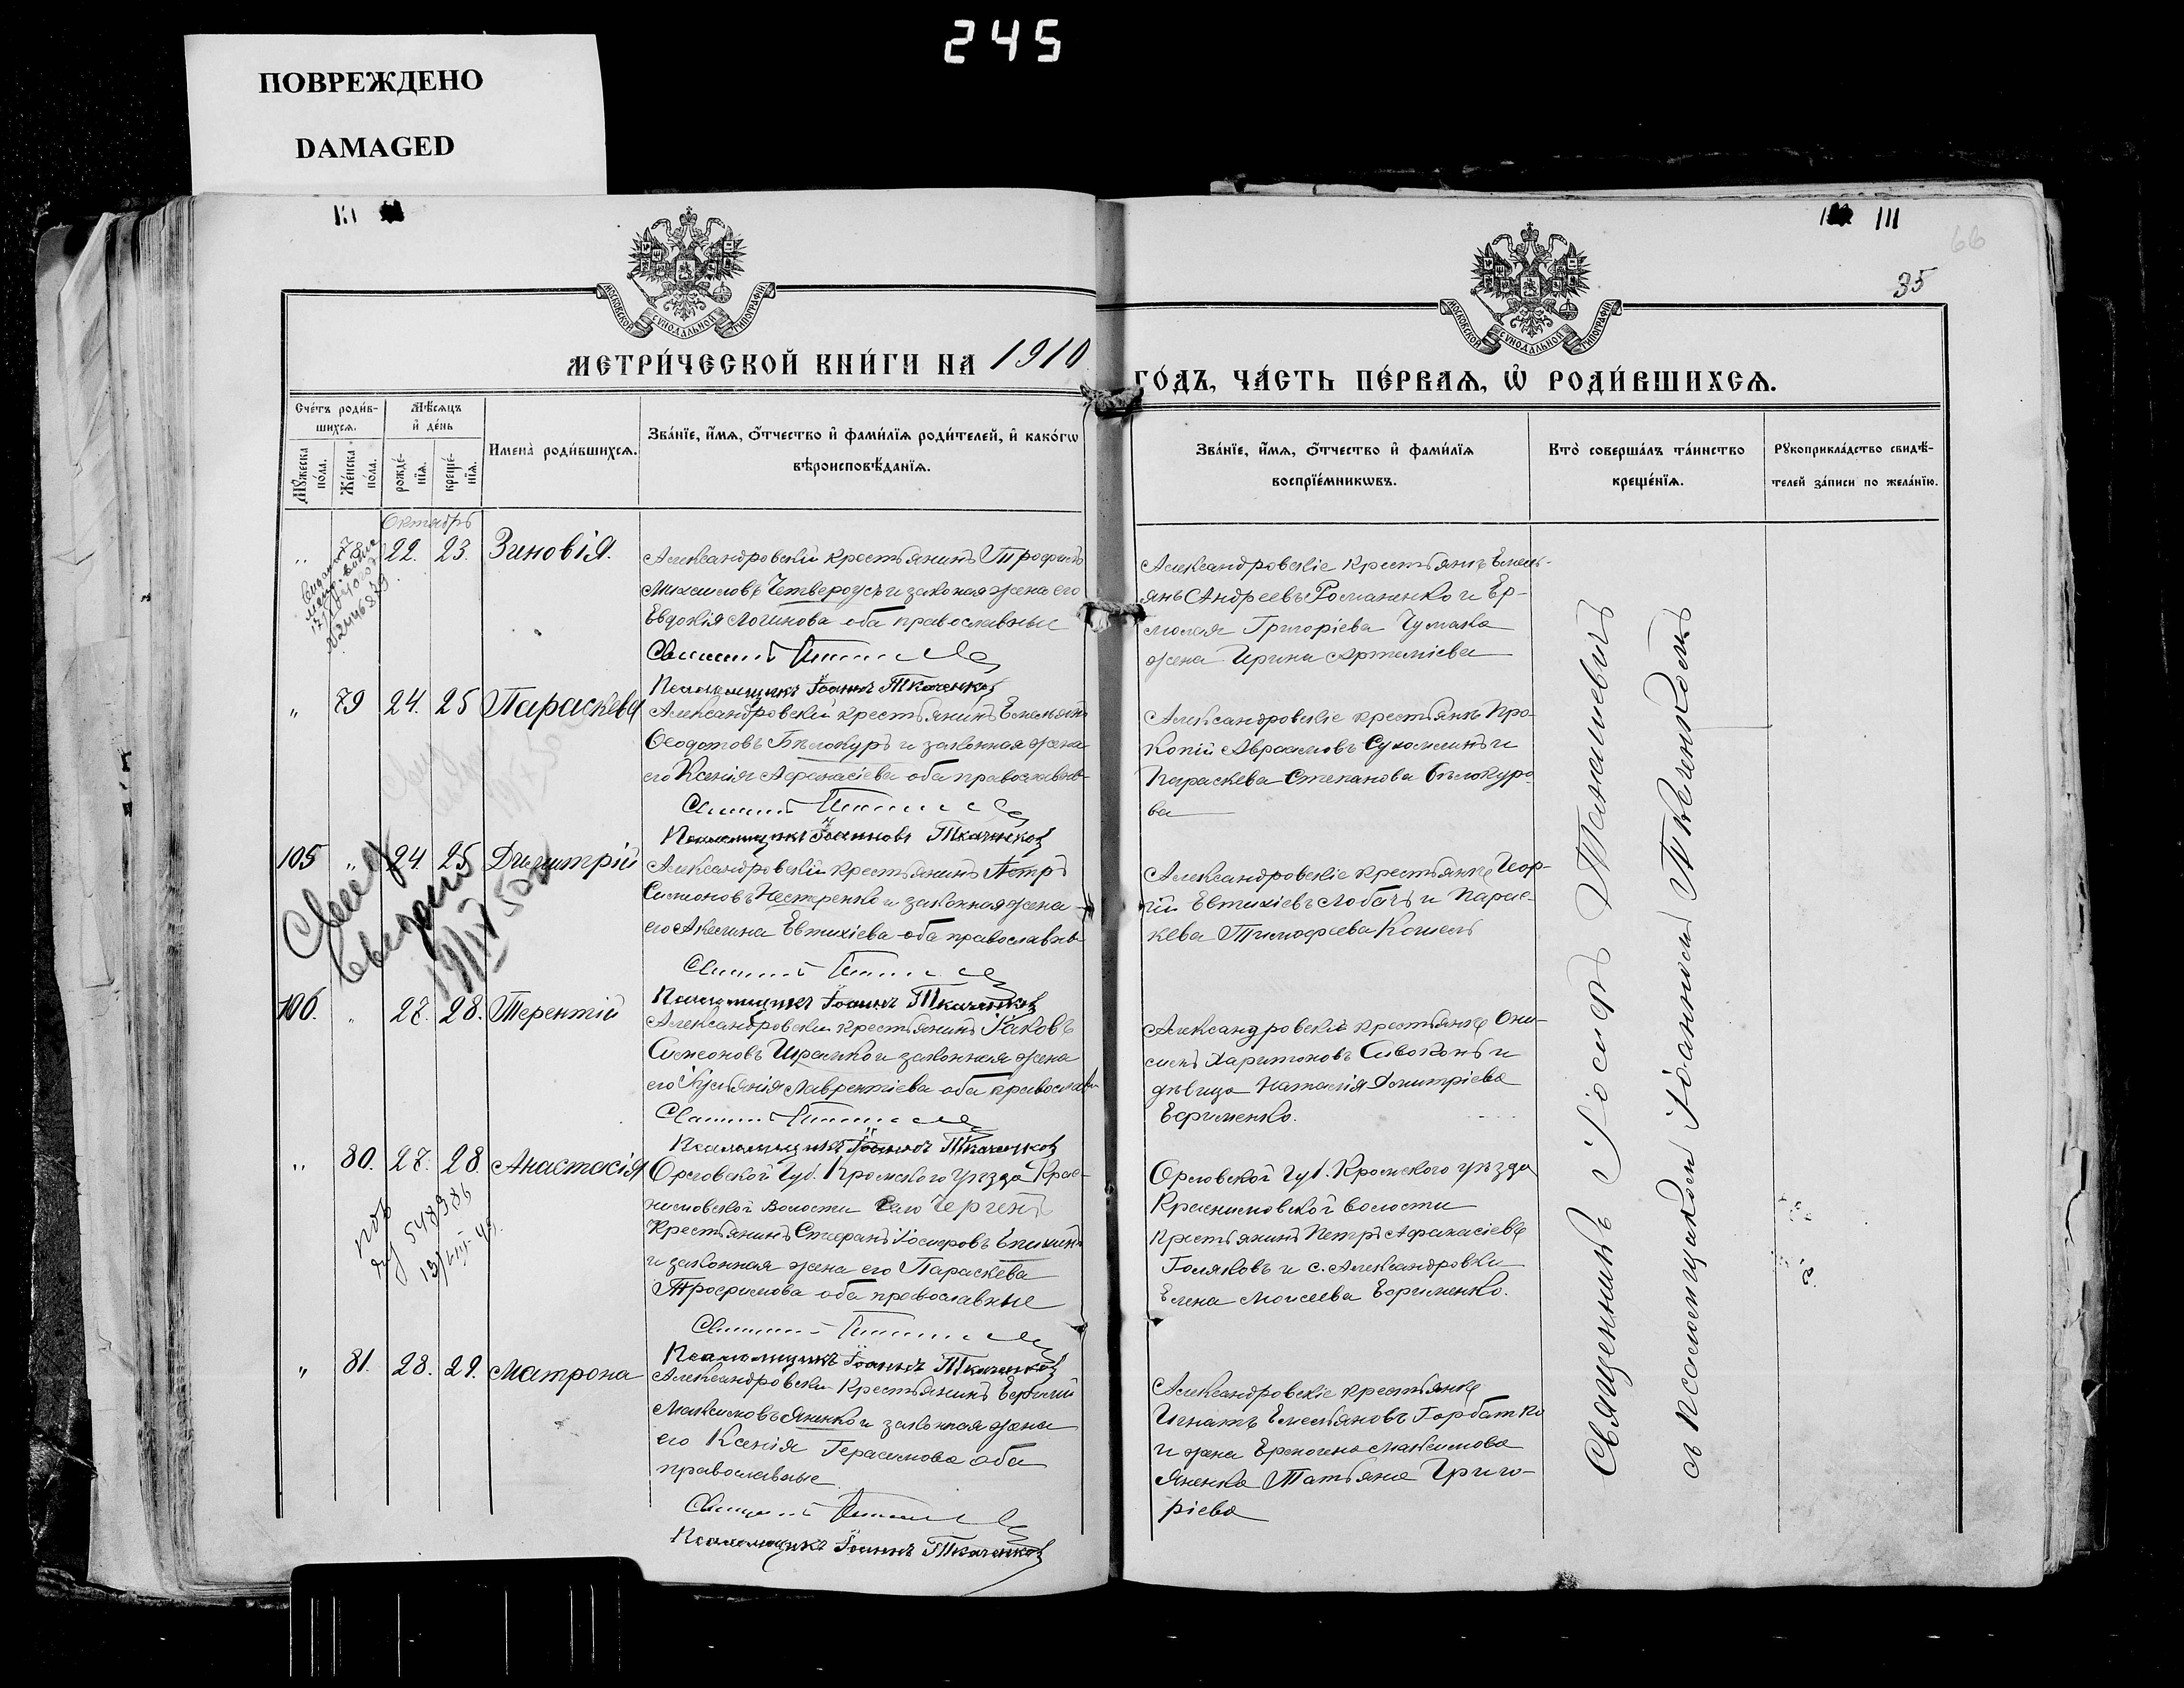 245
ПОВРЕЖДЕНО
DAMAGED
111
111
66
35
МОСКОВСКОЙ СѴНОДАЛЬНОЙ ТИПОГРАФІИ
МОСКОВСКОЙ СѴНОДАЛЬНОЙ ТИПОГРАФІИ
МЕТРИ́ЧЕСКОЙ КНИ́ГИ НА 1910
ГО́ДЪ, ЧА́СТЬ ПЕ́РВАѦ, Ѽ РОДИ́ВШИХСѦ.
Сче́тъ роди́в-
шихсѧ.
Мѹ́жеска по́ла.
Же́нска по́ла.
Мѣ́сѧцъ
и҆ де́нь
рожде́-
нїѧ.
креще́-
нїѧ.
Имена̀ роди́вшихсѧ.
Зва́нїе, и҆́мѧ, ѻ҆́тчество и҆ фами́лїѧ роди́телей, и҆ како́гѡ
вѣроисповѣ́данїѧ.
Зва́нїе, и҆́мѧ, ѻ҆́тчество и҆ фами́лїѧ
воспрїе́мникѡвъ.
Кто̀ соверша́лъ та́инство
креще́нїѧ.
Рѹкоприкла́дство свидѣ́-
телей за́писи по жела́нїю.
Октябрь
" 78 22. 23. Зиновія.
Александровскій крестьянинъ Трофимъ
Максимовъ Четвероусъ и законая жена его
Евдокія Логинова оба православные
Псаломщикъ Іоаннъ Ткаченковъ
Александровскіе крестьяне Емель-
янъ Андреевъ Романенко и Ер-
молая Григоріева Чумака
жена Ирина Артеміева
" 79 24. 25 Параскева
Александровскій крестьянинъ Емельянъ
Ѳеодотовъ Бѣлокуръ и законная жена
его Ксенія Афанасіева оба православные
Псаломщикъ Іоанновъ Ткаченковъ
Александровскіе крестьяне Про-
копій Аврамовъ Сухомлинъ и
Параскева Степанова Бѣлокуро-
ва
105 " 24. 25 Димитрій
Александровскій крестьянинъ Петръ
Симоновъ Нестеренко и законная жена
его Акилина Евтихіева оба православные
Псаломщикъ Іоаннъ Ткаченковъ
Александровскіе крестьяне Геор-
гій Евтихіевъ Лобачъ и Парас-
кева Тимофеева Кошель
106. " 27. 28. Терентій
Александровскій крестьянинъ Іаковъ
Симеоновъ Ирамко и законная жена
его Іуліанія Лаврентіева оба православн.
Псаломщикъ Іоаннъ Ткаченковъ
Александровскіе крестьяне Они-
симъ Харитоновъ Сивоконь и
дѣвица Наталія Димитріева
Ефименко.
" 80. 27. 28. Анастасія
5489386
Орловской Губ. Кромского уѣзда Крас-
никовской волости Село Чергенъ
Крестьянинъ Стефанъ Іосифовъ Епихинъ
и законная жена его Параскева
Трофимова оба православные
Псаломщикъ Іоаннъ Ткаченковъ
Орловской Губ. Кромского уѣзда
Красниковской волости
крестьянинъ Петръ Афанасіевъ
Голяковъ и с. Александровки
Елена Моисеева Ефименко.
" 81. 28. 29. Матрона
Александровскій крестьянинъ Ефимій
Максимовъ Яненко и законная жена
его Ксенія Герасимова оба
православные
Псаломщикъ Іоаннъ Ткаченковъ
Александровскіе крестьяне
Игнатъ Емельяновъ Горбатко
и жена Ермогена Максимова
Яненка Татьяна Григо-
ріева
Священникъ Іосифъ Танашевичъ
съ псаломщикомъ Іоанномъ Ткаченкомъ